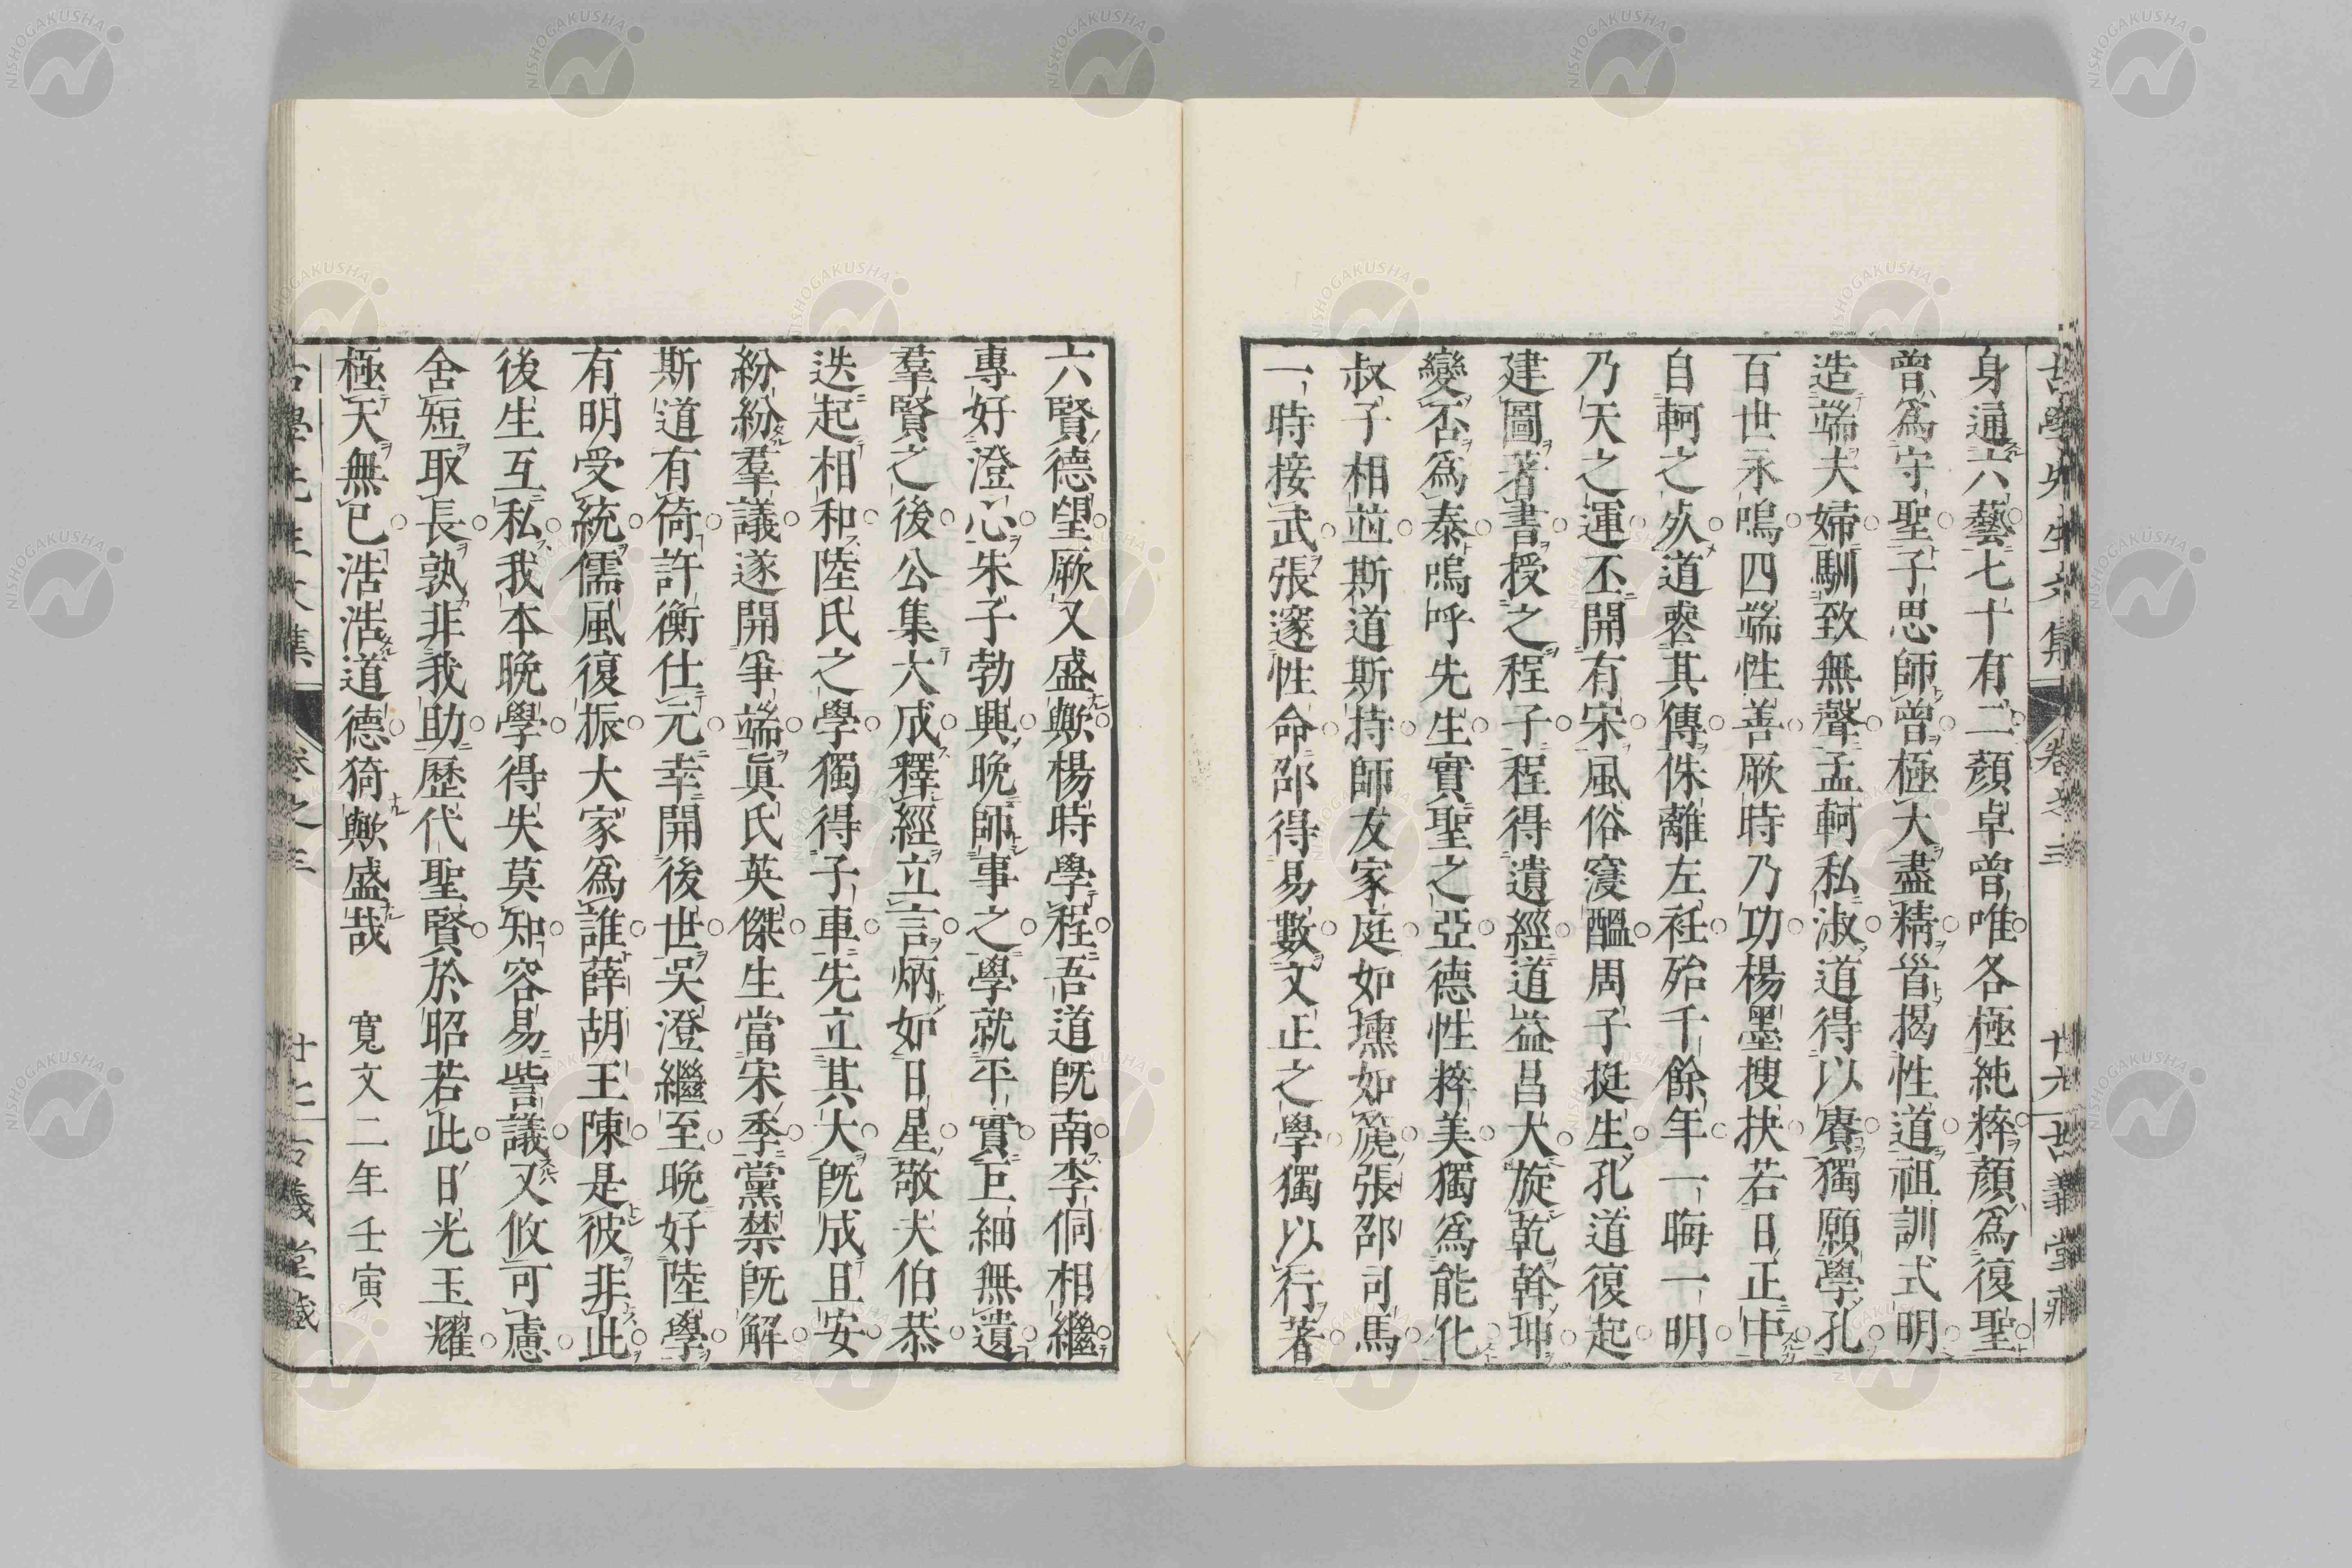 古學先生文集 卷之三 廿六 古義堂藏
身通六藝七十有二顏卓曾唯各極純粹顏爲復聖
曾爲守聖子思師曾極大盡精首揭性道祖訓式明
造端夫婦馴致無聲孟軻私淑道得以賡獨願學孔
百世永鳴四端性善厥時乃功楊墨搜抉若日正中
自軻之歿道蠹其傳侏離左衽殆千餘年一晦一明
乃天之運丕開有宋風俗寖醞周子挺生孔道復起
建圖著書授之程子程得遺經道益昌大旋乾斡坤
變否爲泰嗚呼先生實聖之亞德性粹美獨爲能化
叔子相並斯道斯持師友家庭如壎如篪張邵司馬
一時接武張邃性命邵得易數文正之學獨以行著
六賢德望厥又盛歟楊時學程吾道旣南李侗相繼
專好澄心朱子勃興晩師事之學就平實巨細無遺
羣賢之後公集大成釋經立言炳如日星敬夫伯恭
迭起相和陸氏之學獨得子車先立其大旣成且安
紛紛羣議遂開爭端眞氏英傑生當宋季黨禁旣解
斯道有倚許衡仕元幸開後世吳澄繼至晩好陸學
有明受統儒風復振大家爲誰薛胡王陳是彼非此
後生互私我本晩學得失莫知容易訾議又攸可慮
舍短取長孰非我助歷代聖賢於昭若此日光玉耀
極天無已浩浩道德猗歟盛哉 寬文二年壬寅
古學先生文集 卷之三 廿七 古義堂藏
NISHOGAKUSHA